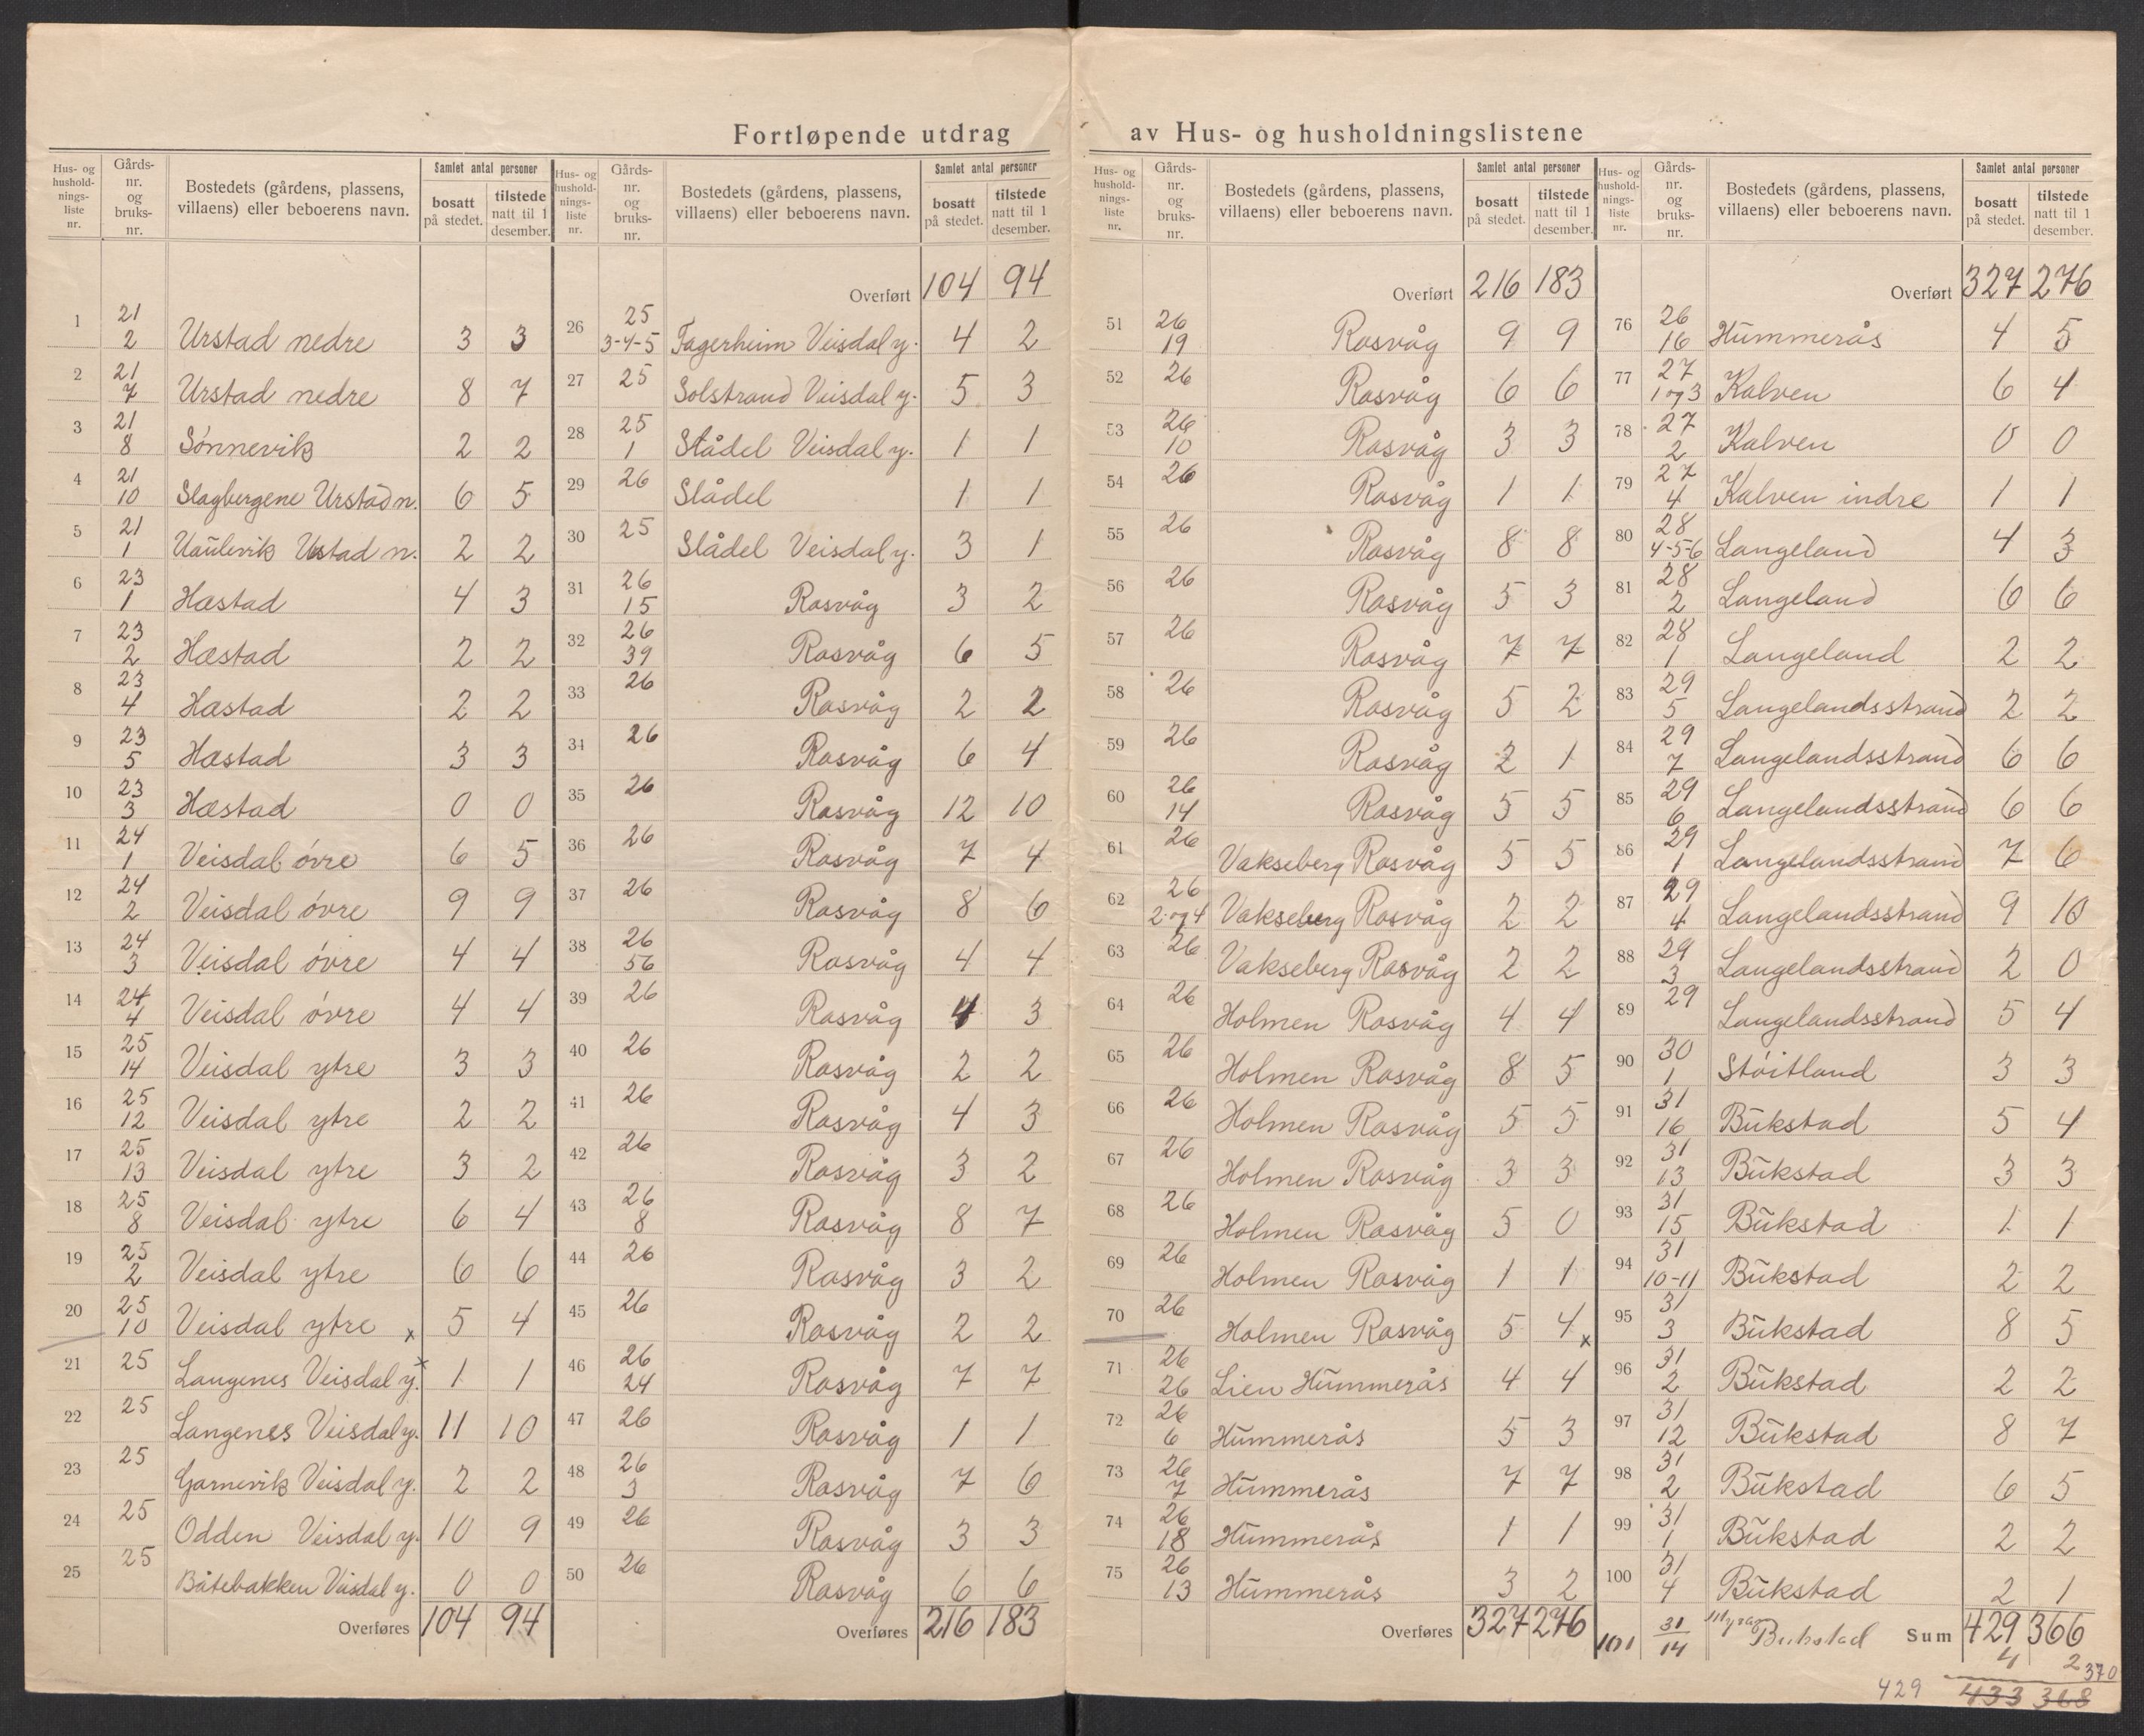 Fortløpende utdrag av Hus- og husholdningslistene
Hus- og husholdnings- liste nr. | Gårds- nr. og bruks- nr. | Bostedets (gårdens, plassens, villaens) eller beboerens navn. | Samlet antal personer bosatt på stedet. | tilstede natt til 1 desember.
1 | 21 2 | Urstad nedre | 3 | 3
2 | 21 7 | Urstad nedre | 8 | 7
3 | 21 8 | Sønnevik | 2 | 2
4 | 21 10 | Slagbergene Urstad n. | 6 | 5
5 | 21 1 | Uaulevik Ustad n. | 2 | 2
6 | 23 1 | Hæstad | 4 | 3
7 | 23 2 | Hæstad | 2 | 2
8 | 23 4 | Hæstad | 2 | 2
9 | 23 5 | Hæstad | 3 | 3
10 | 23 3 | Hæstad | 0 | 0
11 | 24 1 | Veisdal øvre | 6 | 5
12 | 24 2 | Veisdal øvre | 9 | 9
13 | 24 3 | Veisdal øvre | 4 | 4
14 | 24 4 | Veisdal øvre | 4 | 4
15 | 25 14 | Veisdal ytre | 3 | 3
16 | 25 12 | Veisdal ytre | 2 | 2
17 | 25 13 | Veisdal ytre | 3 | 2
18 | 25 8 | Veisdal ytre | 6 | 4
19 | 25 2 | Veisdal ytre | 6 | 6
20 | 25 10 | Veisdal ytre x | 5 | 4
21 | 25 | Langenes Veisdal y. x | 1 | 1
22 | 25 | Langenes Veisdal y. | 11 | 10
23 | 25 | Garnevik Veisdal y. | 2 | 2
24 | 25 | Odden Veisdal y. | 10 | 9
25 | 25 | Båtebakken Veisdal y. | 0 | 0
Overføres | 104 | 94
Hus- og husholdnings- liste nr. | Gårds- nr. og bruks- nr. | Bostedets (gårdens, plassens, villaens) eller beboerens navn. | Samlet antal personer bosatt på stedet. | tilstede natt til 1 desember.
Overført | 104 | 94
26 | 25 3-4-5 | Fagerheim Veisdal y. | 4 | 2
27 | 25 | Solstrand Veisdal y. | 5 | 3
28 | 25 1 | Stådel Veisdal y. | 1 | 1
29 | 26 | Slådel | 1 | 1
30 | 25 | Slådel Veisdal y. | 3 | 1
31 | 26 15 | Rasvåg | 3 | 2
32 | 26 39 | Rasvåg | 6 | 5
33 | 26 | Rasvåg | 2 | 2
34 | 26 | Rasvåg | 6 | 4
35 | 26 | Rasvåg | 12 | 10
36 | 26 | Rasvåg | 7 | 4
37 | 26 | Rasvåg | 8 | 6
38 | 26 56 | Rasvåg | 4 | 4
39 | 26 | Rasvåg | 4 | 3
40 | 26 | Rasvåg | 2 | 2
41 | 26 | Rasvåg | 4 | 3
42 | 26 | Rasvåg | 3 | 2
43 | 26 8 | Rasvåg | 8 | 7
44 | 26 | Rasvåg | 3 | 2
45 | 26 | Rasvåg | 2 | 2
46 | 26 24 | Rasvåg | 7 | 7
47 | 26 | Rasvåg | 1 | 1
48 | 26 3 | Rasvåg | 7 | 6
49 | 26 | Rasvåg | 3 | 3
50 | 26 | Rasvåg | 6 | 6
Overføres | 216 | 183
Hus- og husholdnings- liste nr. | Gårds- nr. og bruks- nr. | Bostedets (gårdens, plassens, villaens) eller beboerens navn. | Samlet antal personer bosatt på stedet. | tilstede natt til 1 desember.
Overført | 216 | 183
51 | 26 19 | Rasvåg | 9 | 9
52 | 26 | Rasvåg | 6 | 6
53 | 26 10 | Rasvåg | 3 | 3
54 | 26 | Rasvåg | 1 | 1
55 | 26 | Rasvåg | 8 | 8
56 | 26 | Rasvåg | 5 | 3
57 | 26 | Rasvåg | 7 | 7
58 | 26 | Rasvåg | 5 | 2
59 | 26 | Rasvåg | 2 | 1
60 | 26 14 | Rasvåg | 5 | 5
61 | 26 | Vakseberg Rasvåg | 5 | 5
62 | 26 2 og 4 | Vakseberg Rasvåg | 2 | 2
63 | 26 | Vakseberg Rasvåg | 2 | 2
64 | 26 | Holmen Rasvåg | 4 | 4
65 | 26 | Holmen Rasvåg | 8 | 5
66 | 26 | Holmen Rasvåg | 5 | 5
67 | 26 | Holmen Rasvåg | 3 | 3
68 | 26 | Holmen Rasvåg | 5 | 0
69 | 26 | Holmen Rasvåg | 1 | 1
70 | 26 | Holmen Rasvåg | 5 | 4 x
71 | 26 26 | Lien Hummerås | 4 | 4
72 | 26 6 | Hummerås | 5 | 3
73 | 26 7 | Hummerås | 7 | 7
74 | 26 18 | Hummerås | 1 | 1
75 | 26 13 | Hummerås | 3 | 2
Overføres | 327 | 276
Hus- og husholdnings- liste nr. | Gårds- nr. og bruks- nr. | Bostedets (gårdens, plassens, villaens) eller beboerens navn. | Samlet antal personer bosatt på stedet. | tilstede natt til 1 desember.
Overført | 327 | 276
76 | 26 16 | Hummerås | 4 | 5
77 | 27 1 og 3 | Kalven | 6 | 4
78 | 27 2 | Kalven | 0 | 0
79 | 27 4 | Kalven indre | 1 | 1
80 | 28 4-5-6 | Langeland | 4 | 3
81 | 28 2 | Langeland | 6 | 6
82 | 28 1 | Langeland | 2 | 2
83 | 29 5 | Langelandsstrand | 2 | 2
84 | 29 7 | Langelandsstrand | 6 | 6
85 | 29 6 | Langelandsstrand | 6 | 6
86 | 29 1 | Langelandsstrand | 7 | 6
87 | 29 4 | Langelandsstrand | 9 | 10
88 | 29 3 | Langelandsstrand | 2 | 0
89 | 29 | Langelandsstrand | 5 | 4
90 | 30 1 | Støitland | 3 | 3
91 | 31 16 | Bukstad | 5 | 4
92 | 31 13 | Bukstad | 3 | 3
93 | 31 15 | Bukstad | 1 | 1
94 | 31 10-11 | Bukstad | 2 | 2
95 | 31 3 | Bukstad | 8 | 5
96 | 31 2 | Bukstad | 2 | 2
97 | 31 12 | Bukstad | 8 | 7
98 | 31 2 | Bukstad | 6 | 5
99 | 31 1 | Bukstad | 2 | 2
100 | 31 4 | Bukstad | 2 | 1
101 | 31 14 | Myran Bukstad | Sum | 429 | 366
4 | 2
370
429 | 433 | 368